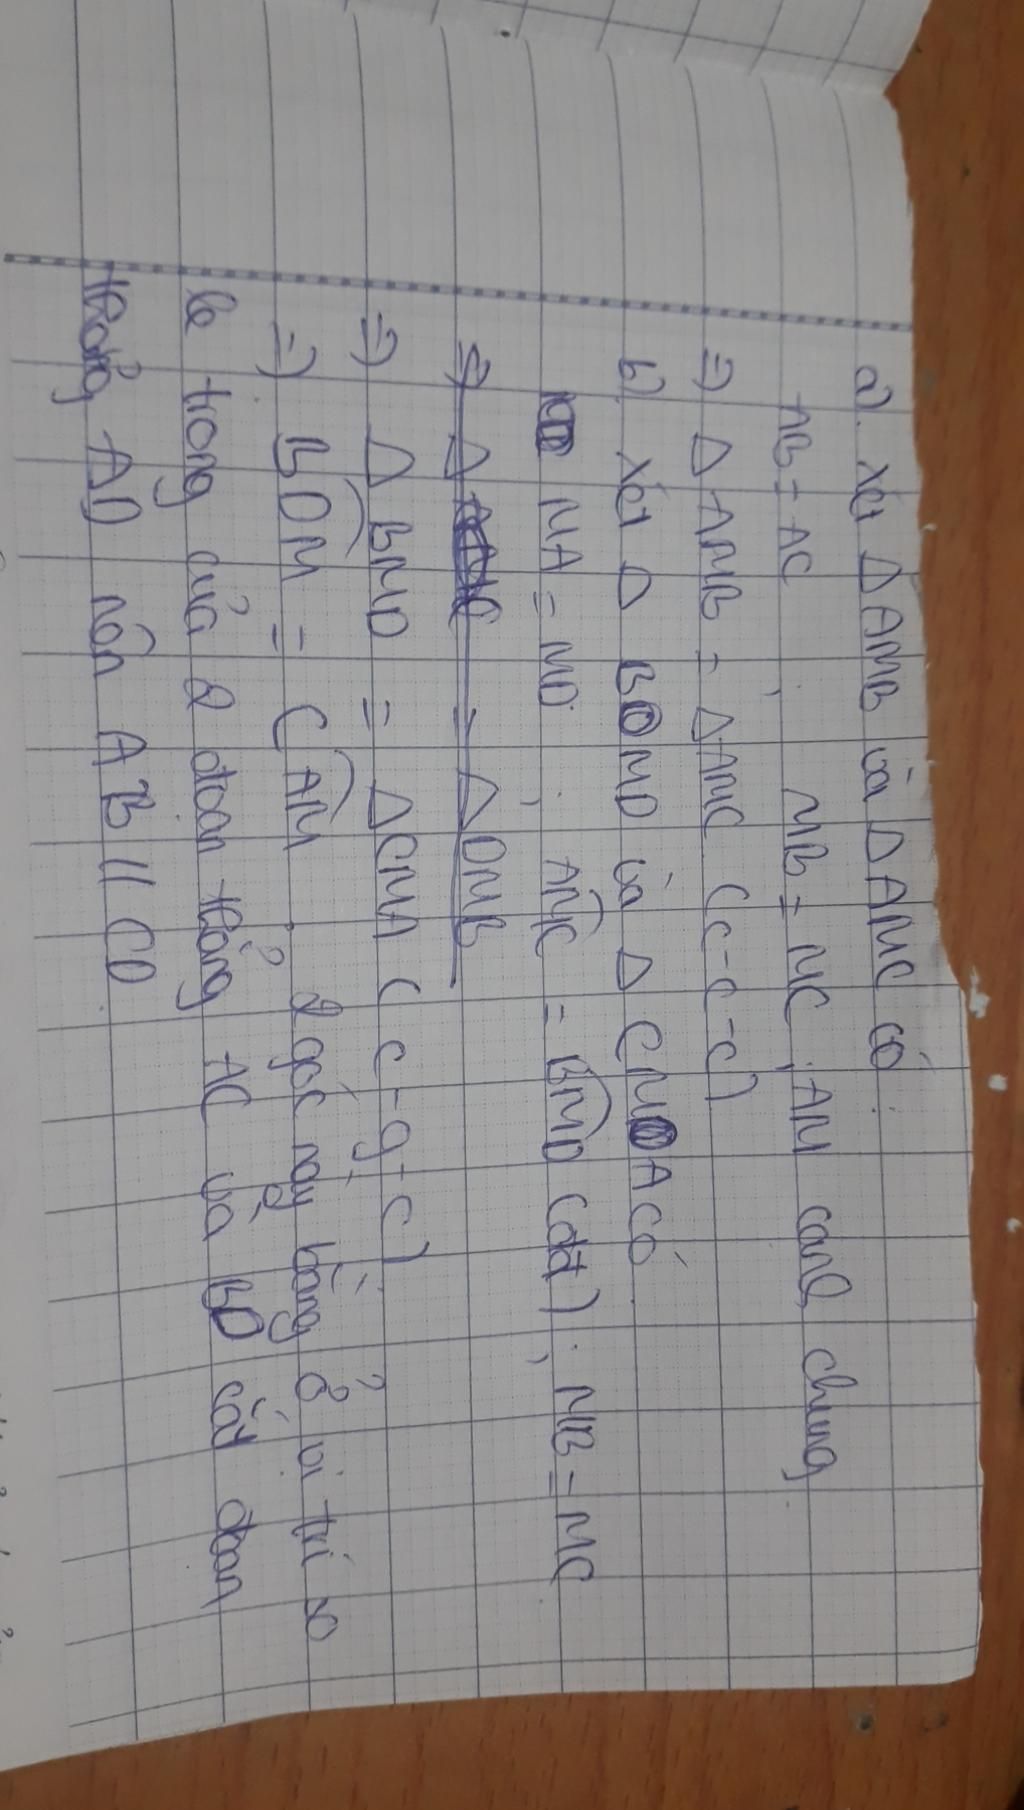 a). xét Δ AMB và Δ AMC có:
AB = AC ; MB = MC ; AM cạnh chung
=) Δ AMB = Δ AMC (c-c-c)
b) xét Δ BMD và Δ CMA có
MA = MD ; AMC = BMD (đđ) ; MB = MC
=) Δ = Δ DMB
=) Δ BMD = Δ CMA (c-g-c)
=) BDM = CAM . 2 góc này bằng ở vị trí so
le trong của 2 đoạn thẳng AC và BD cắt đoạn
thẳng AD nên AB // CD